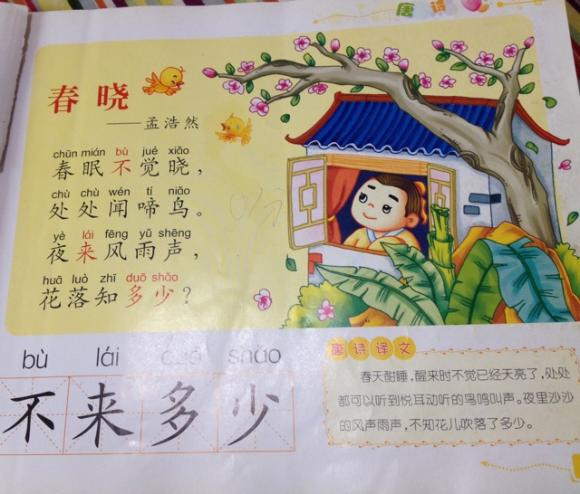 唐诗
春晓
——孟浩然
chūn mián bù jué xiǎo
春眠不觉晓，
chù chù wén tí niǎo
处处闻啼鸟。
yè lái fēng yǔ shēng
夜来风雨声，
huā luò zhī duō shǎo
花落知多少？
bù lái duō shǎo
不来多少
唐诗译文
春天酣睡，醒来时不觉已经天亮了，处处
都可以听到悦耳动听的鸟鸣叫声。夜里沙沙
的风声雨声，不知花儿吹落了多少。